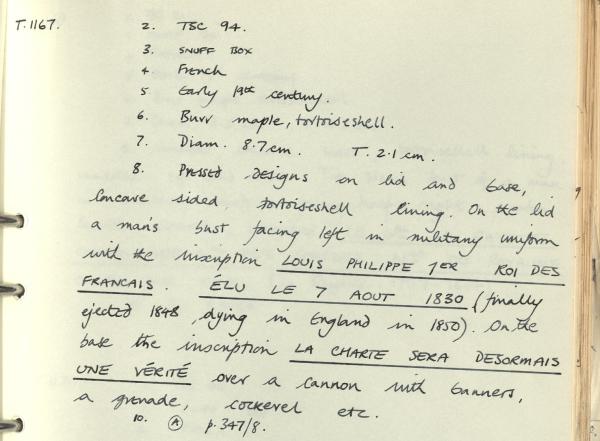 T.1167. 2. TSC 94.
3. SNUFF BOX
4 French
5 Early 19th century.
6. Burr maple, tortoiseshell.
7. Diam. 8.7cm. T. 2.1 cm.
8. PRESSED DESIGNS on lid and base,
Concave sided tortoiseshell lining. On the lid
a man's bust facing left in military uniform
with the inscription LOUIS PHILIPPE 1ER ROI DES
FRANCAIS. ÉLU LE 7 AOUT 1830 (finally
ejected 1848, dying in England in 1850). On the
base the inscription LA CHARTE SERA DESORMAIS
UNE VÉRITÉ over a cannon with banners,
a grenade, cockerel etc.
10. A p.347/8.